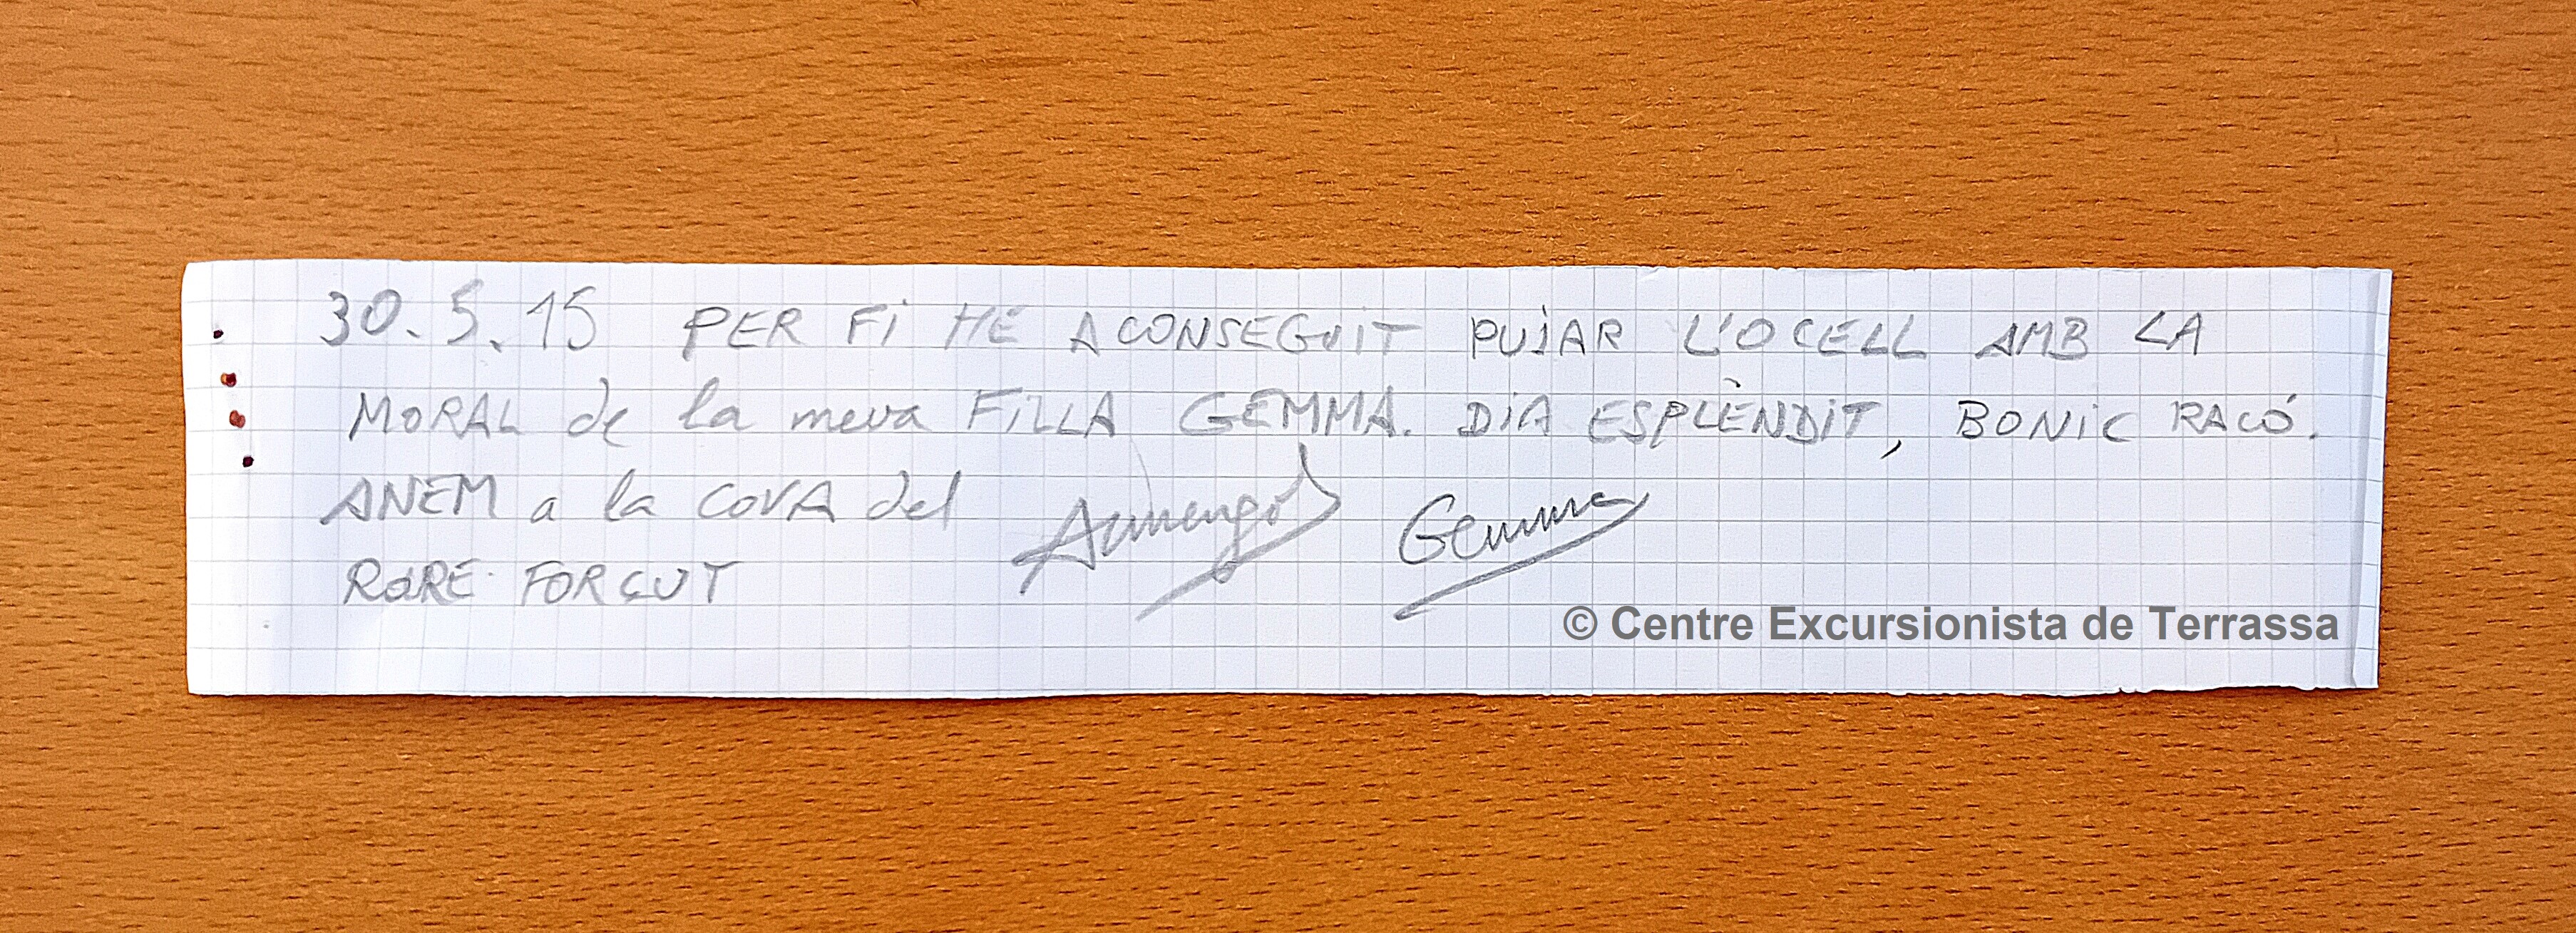 30.5.15 PER Fi HE ACONSEGUiT PUjAR L'OCELL AMB LA
MORAL de la meva FiLLA GEMMA. DiA ESPLÈNDiT, BONiC RACÓ.
ANEM a la COVA del
RORE FORÇUT
Armengol Gemma
© Centre Excursionista de Terrassa